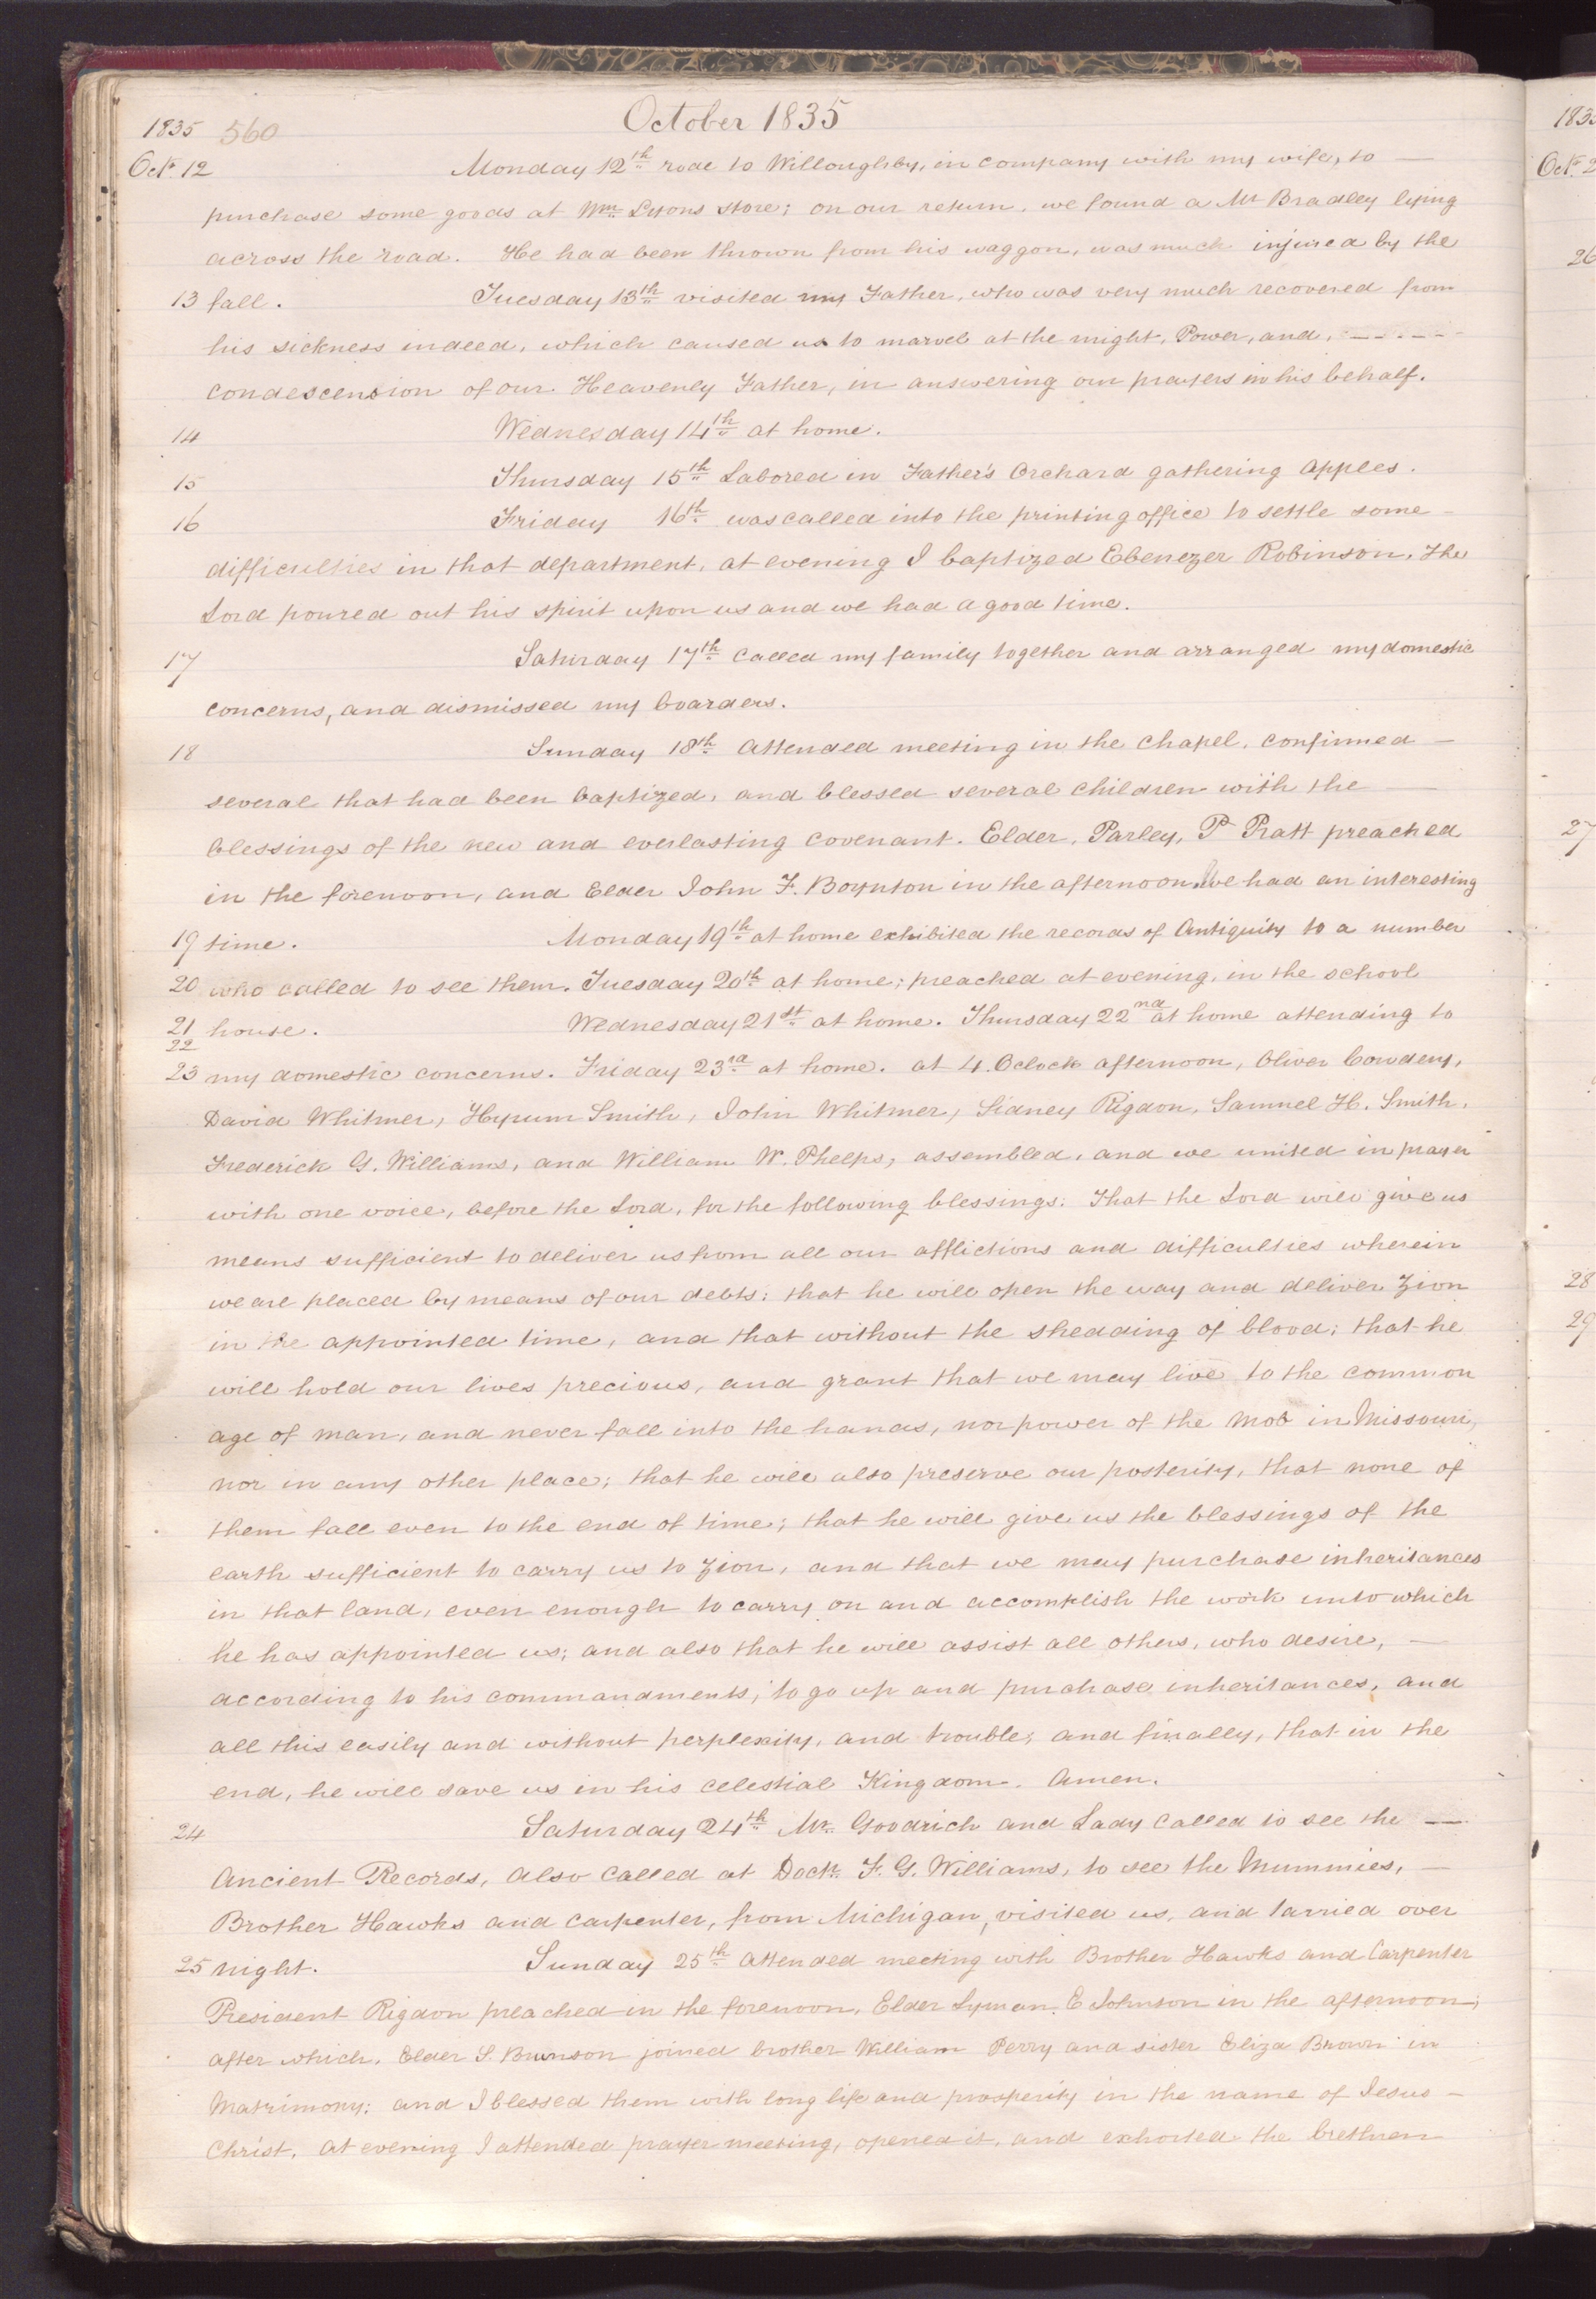 October 1835
1835 560
Oct. 12 Monday 12th rode to Willoughby, in company with my wife, to —
purchase some goods at Wm Lyons store; on our return, we found a Mr Bradley lying
across the road. He had been thrown from his waggon, was much injured by the
13 fall. Tuesday 13th visited my Father, who was very much recovered from
his sickness indeed, which caused us to marvel at the might, Power, and, — — . — —
condescension of our Heavenly Father, in answering our prayers in his behalf.
14 Wednesday 14th at home.
15 Thursday 15th Labored in Father's Orchard gathering Apples.
16 Friday 16th was called into the printing office to settle some —
difficulties in that department, at evening I baptized Ebenezer Robinson, the
Lord poured out his spirit upon us and we had a good time.
17 Saturday 17th Called my family together and arranged my domestic
concerns, and dismissed my boarders.
18 Sunday 18th Attended meeting in the chapel, confirmed —
several that had been baptized, and blessed several children with the —
blessings of the new and everlasting covenant. Elder, Parley, P Pratt preached
in the forenoon, and Elder John F. Boynton in the afternoon, We had an interesting
19 time. Monday 19th at home exhibited the records of Antiquity to a number
20 who called to see them. Tuesday 20th at home; preached at evening, in the school
21 house. Wednesday 21st at home. Thursday 22nd at home attending to
22
23 my domestic concerns. Friday 23rd at home. at 4. Oclock afternoon, Oliver Cowdery,
David Whitmer, Hyrum Smith, John Whitmer, Sidney Rigdon, Samuel H. Smith,
Frederick G. Williams, and William W. Phelps, assembled, and we united in prayer
with one voice, before the Lord, for the following blessings: That the Lord will give us
means sufficient to deliver us from all our afflictions and difficulties wherein
we are placed by means of our debts; that he will open the way and deliver Zion
in the appointed time, and that without the shedding of blood; that he
will hold our lives precious, and grant that we may live to the common
age of man, and never fall into the hands, nor power of the Mob in Missouri,
nor in any other place; that he will also preserve our posterity, that none of
them fall even to the end of time; that he will give us the blessings of the
earth sufficient to carry us to Zion, and that we may purchase inheritances
in that land, even enough to carry on and accomplish the work unto which
he has appointed us; and also that he will assist all others, who desire, —
according to his commandments, to go up and purchase inheritances, and
all this easily and without perplexity, and trouble; and finally, that in the
end, he will save us in his celestial Kingdom. Amen.
24 Saturday 24th Mr. Goodrich and Lady called to see the —
Ancient Records, also called at Doctr. F. G. Williams, to see the Mummies, —
Brother Hawks and Carpenter, from Michigan, visited us, and tarried over
25 night. Sunday 25th attended meeting with Brother Hawks and Carpenter
President Rigdon preached in the forenoon, Elder Lyman. E Johnson in the afternoon;
after which, Elder S. Brunson joined brother William Perry and sister Eliza Brown in
Matrimony: and I blessed them with long life and prosperity in the name of Jesus —
Christ. At evening I attended prayer meeting, opened it, and exhorted the brethren
Oct. 2
26
27
28
29